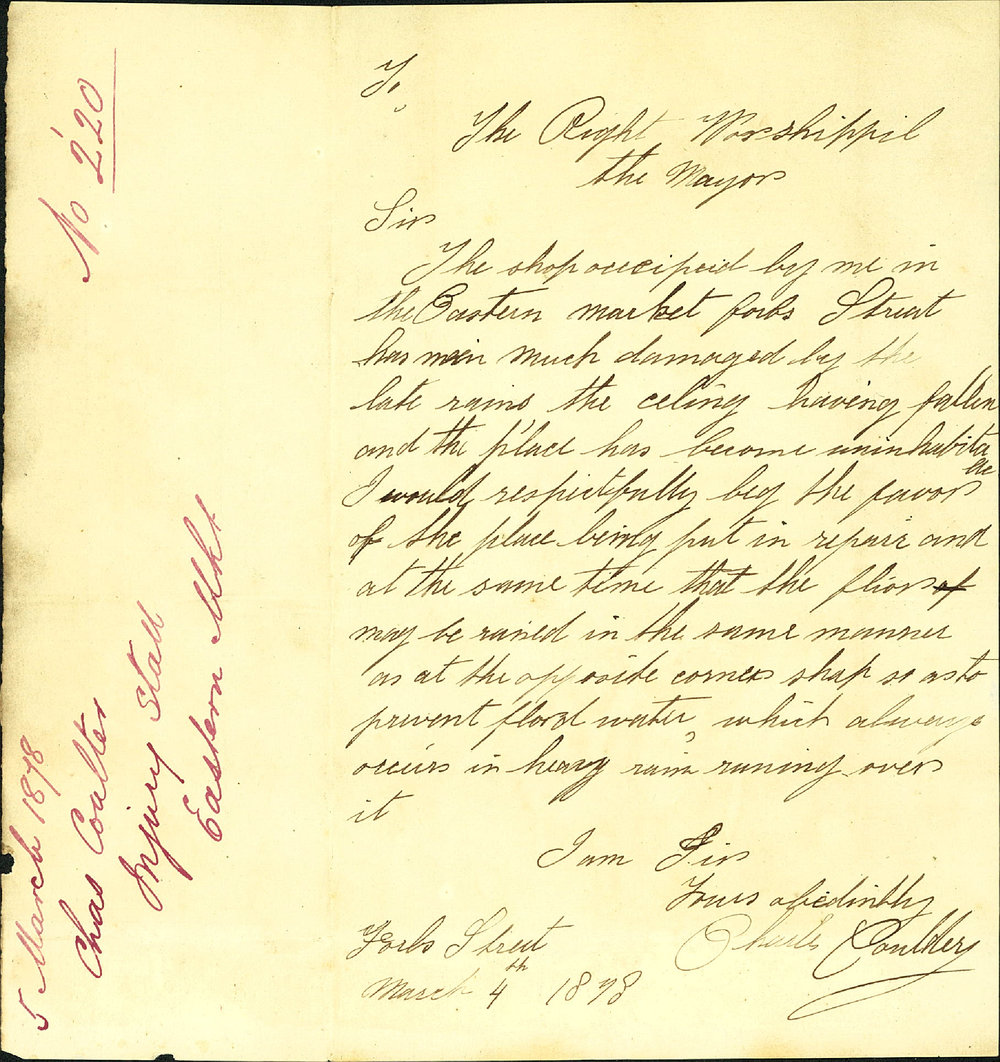 No 220
5 March 1878
Chas Coulter
Injury Stall
Eastern Mkt
To
The Right Worshippil
the Mayor
Sir
The shop occcipeid by me in
the Eastern market forbs Street
has much damaged by the
late rains the celing having fallen
and the place has become uninhabita
ble
I would respectfully beg the favor
of the place being put in repair and
at the same time that the floor of
may be raised in the same manner
as at the opposite corner shop so as to
prevent flood water, which always
occurs in heavy rain runing over
it
I am Sir
Yours obedintly
Charles Couldery
Forbs Street
March 4th 1878